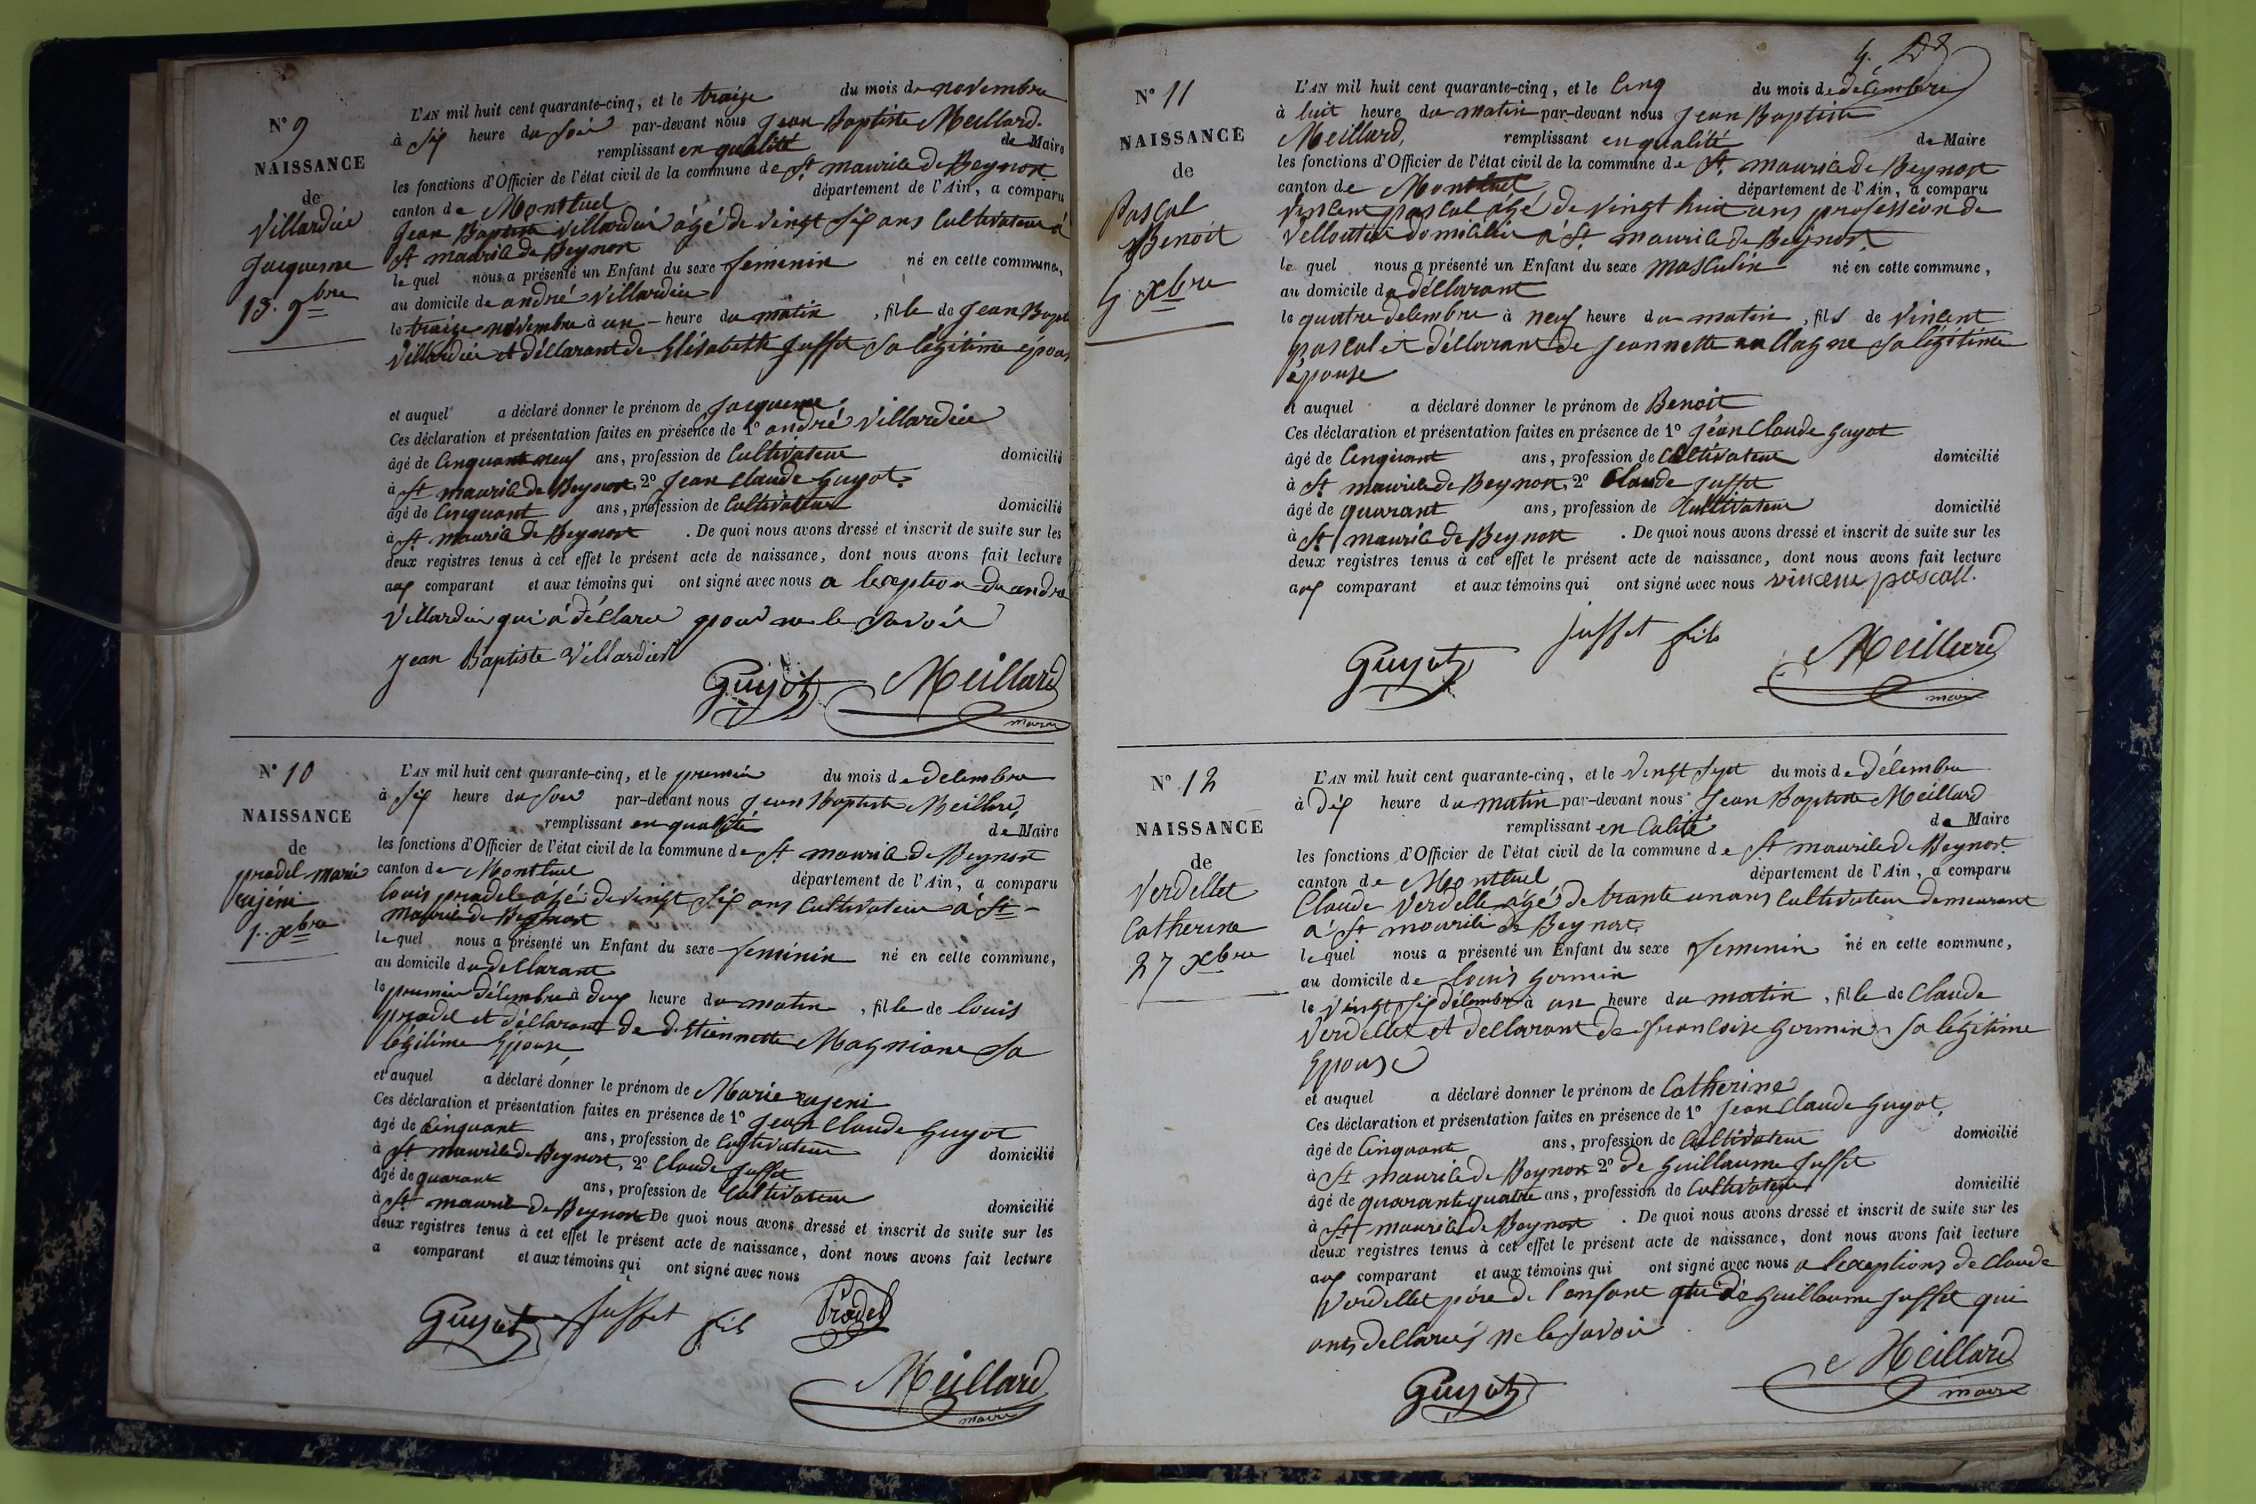 N° 9
NAISSANCE
de
Villardier
Jacqueme
13. 9bre
L'AN mil huit cent quarante-cinq, et le traize du mois de novembre
à six heure du soir par-devant nous Jean Baptiste Meillard.
remplissant en qualité de Maire
les fonctions d'Officier de l'état civil de la commune de St maurice de Beynost
canton de Montluel département de l'Ain, a comparu
Jean Baptiste Villardier âgé de vingt six ans Cultivateur à
St maurice de Beynost
le quel nous a présenté un Enfant du sexe feminin né en cette commune,
au domicile de andré Villardier
le traize novembre à un heure du matin, fille de Jean Bapt
Villardier et déllarant de Elisabeth Juffet sa légitime épous
et auquel a déclaré donner le prénom de Jacqueme
Ces déclaration et présentation faites en présence de 1° andré Villardier
âgé de Cinquante neuf ans, profession de Cultivateur domicilié
à St maurice de Beynost, 2° Jean Claude Guyot.
âgé de Cinquant ans, profession de Cultivateur domicilié
à St maurice de Beynost. De quoi nous avons dressé et inscrit de suite sur les
deux registres tenus à cet effet le présent acte de naissance, dont nous avons fait lecture
aux comparant et aux témoins qui ont signé avec nous a lexception du andré
Villardier qui a déllaré pour ne le savoir
Jean Baptiste Villardier
Guyot Meillard
maire
N° 10
NAISSANCE
de
pradel marie
eujéni
1. xbre
L'AN mil huit cent quarante-cinq, et le premier du mois de délembre
à six heure du soir par-devant nous Jean Baptiste Meillard,
remplissant en qualité de Maire
les fonctions d'Officier de l'état civil de la commune de St maurice de Beynost
canton de Montluel département de l'Ain, a comparu
louis pradel âgé de vingt six ans Cultivateur à St
maurice de Beynost
le quel nous a présenté un Enfant du sexe feminin né en cette commune,
au domicile du dellarant
le premier délembre à deux heure du matin, fille de louis
pradel et déllarant de d'Etiennette Magniane sa
légitime Epouse
et auquel a déclaré donner le prénom de Marie eujeni
Ces déclaration et présentation faites en présence de 1° Jean Claude Guyot
âgé de Cinquant ans, profession de Cultivateur domicilié
à St maurice de Beynost, 2° Claude Juffet
âgé de quarant ans, profession de Cultivateur domicilié
à St maurice de Beynost De quoi nous avons dressé et inscrit de suite sur les
deux registres tenus à cet effet le présent acte de naissance, dont nous avons fait lecture
a comparant et aux témoins qui ont signé avec nous
Guyot Juffet fils Pradel
Meillard
maire
N° 11
NAISSANCE
de
Pascal
Benoit
4 xbre
L'AN mil huit cent quarante-cinq, et le Cinq du mois de délembre
à luit heure du matin par-devant nous Jean Baptiste
Meillard, remplissant en qualité de Maire
les fonctions d'Officier de l'état civil de la commune de St maurice de Beynost
canton de Montluel département de l'Ain, a comparu
Vincent pascal âgé de vingt huit ans profession de
Velloutier domicilié à St maurice de Beynost.
le quel nous a présenté un Enfant du sexe masculin né en cette commune,
au domicile du déllarant
le quatre delembre à neuf heure du matin, fils de Vincent
pascal et déllarant de Jeannette sa légitime
épouse
et auquel a déclaré donner le prénom de Benoit
Ces déclaration et présentation faites en présence de 1° Jean Claude Guyot
âgé de Cinquant ans, profession de Cultivateur domicilié
à St maurice de Beynost, 2° Claude Juffet
âgé de quarant ans, profession de Cultivateur domicilié
à St maurice de Beynost. De quoi nous avons dressé et inscrit de suite sur les
deux registres tenus à cet effet le présent acte de naissance, dont nous avons fait lecture
aux comparant et aux témoins qui ont signé avec nous vincent pascall.
Guyot Juffet fils Meillard
maire
N° 12
NAISSANCE
de
Verdellet
Catherine
27 xbre
L'AN mil huit cent quarante-cinq, et le Vingt sept du mois de délembre
à dix heure du matin par-devant nous Jean Baptiste Meillard
remplissant en Calité de Maire
les fonctions d'Officier de l'état civil de la commune de St maurice de Beynost
canton de Montluel département de l'Ain, a comparu
Claude Verdellet âgé de trante un ans Cultivateur demeurant
à St maurice de Beynost
le quel nous a présenté un Enfant du sexe femenin né en cette commune,
au domicile de louis Germin
le vingt six délembre à un heure du matin, fille de Claude
Verdellet et dellarant de francoise Germin sa légitime
Epouse
et auquel a déclaré donner le prénom de Catherine
Ces déclaration et présentation faites en présence de 1° Jean Claude Guyot
âgé de Cinquante ans, profession de Cultivateur domicilié
à St maurice de Beynost 2° de Guillaume Juffet
âgé de quarante quatre ans, profession de Cultivateur domicilié
à St maurice de Beynost. De quoi nous avons dressé et inscrit de suite sur les
deux registres tenus à cet effet le présent acte de naissance, dont nous avons fait lecture
aux comparant et aux témoins qui ont signé avec nous a lexceptions de Claude
Verdellet pére de l'enfant Guillaume Juffet qui
onts dellarés ne le savoir
Guyot Meillard
maire